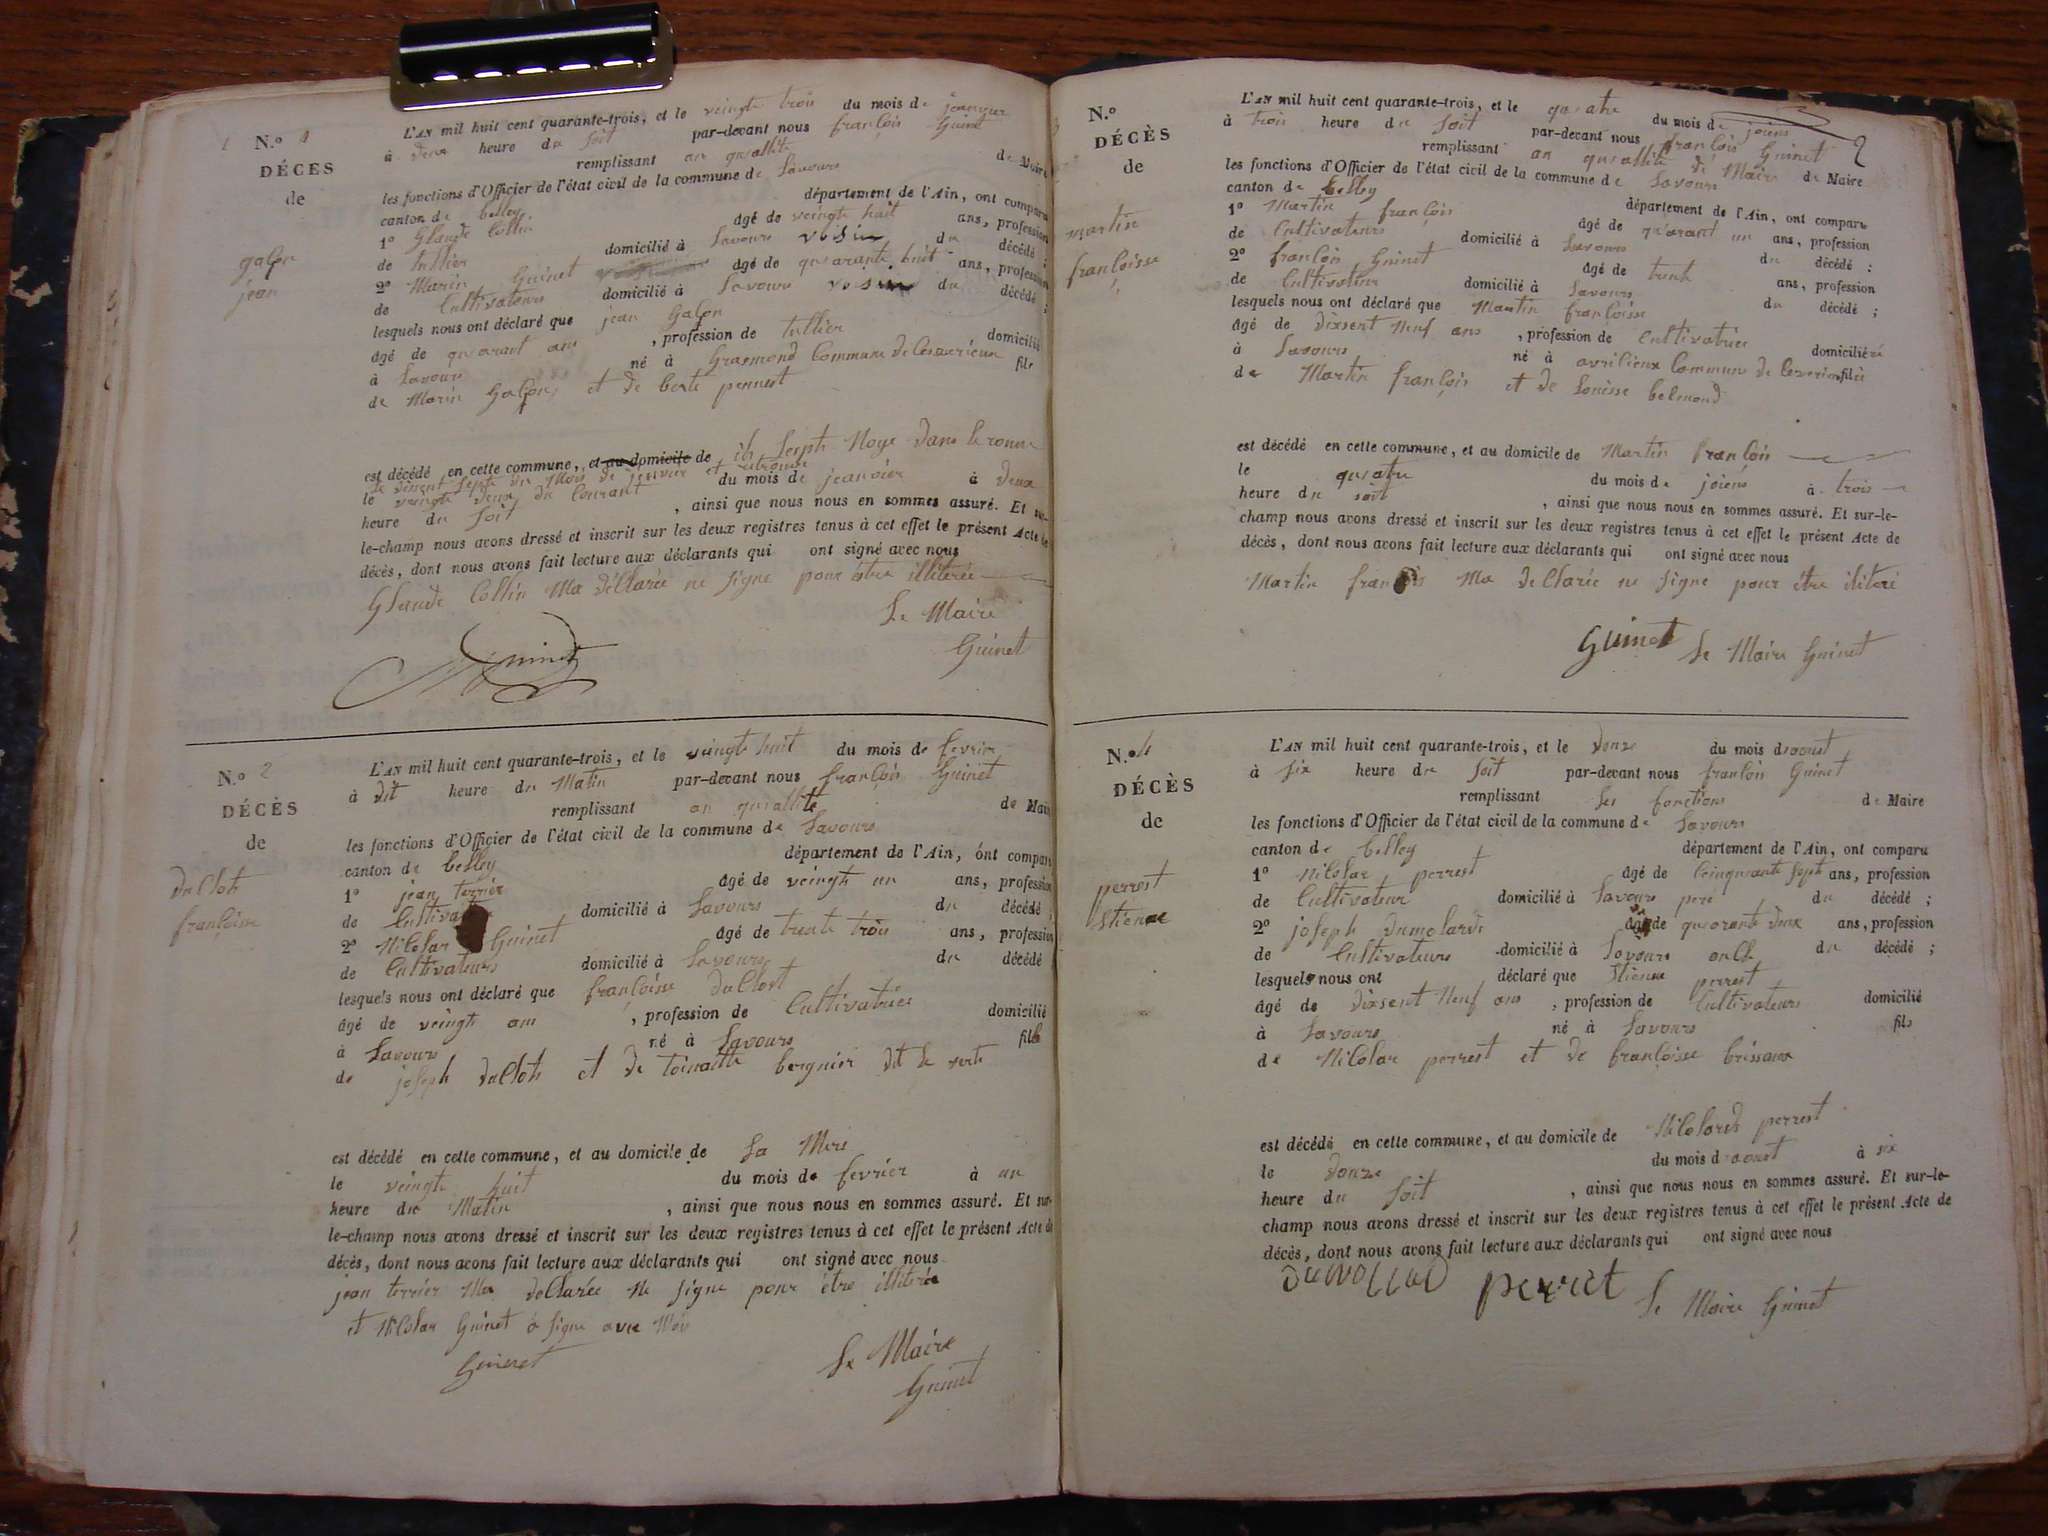 N.º 1
DÉCES
de
galon
jean
L'AN mil huit cent quarante-trois, et le veingte trois du mois de
à deux heure du soit par-devant nous françois Guinet
remplissant an quallité de Maire
les fonctions d'Officier de l'état civil de la commune de Savours
canton de belley département de l'Ain, ont comparu
1º Glaude Collin âgé de veingte huit ans, profession
de tullier domicilié à Savours voisin du décédé ;
2º Marin Guinet âgé de quarante huit ans, profession
de Cultivateurs domicilié à Savours voisin du décédé ;
lesquels nous ont déclaré que jean Galon
âgé de quarant ans , profession de tullier domicilié
à Savours né à Commune de fils
de Marin Galon et de
est décédé en cette commune, et au domicile de Noye dans le
le veingte deux du Courant du mois de jeanvier à deux
heure du soit , ainsi que nous nous en sommes assuré. Et sur-
le-champ nous avons dressé et inscrit sur les deux registres tenus à cet effet le présent Acte de
décès, dont nous avons fait lecture aux déclarants qui ont signé avec nous
Glaude Collin Ma déClarée ne signe pour être illiterée
Le Maire
Guinet
N.º 2
DÉCÈS
de
duClots
françoise
L'AN mil huit cent quarante-trois, et le veingte huit du mois de fevrier
à dit heure du Matin par-devant nous françois Guinet
remplissant an quallité de Maire
les fonctions d'Officier de l'état civil de la commune de Savours
canton de belley département de l'Ain, ont comparu
1º jean terrier âgé de veingte un ans, profession
de domicilié à Savours du décédé ;
2º Nicolas Guinet âgé de trente trois ans, profession
de Cultivateurs domicilié à Savours du décédé
lesquels nous ont déclaré que françoise duClost
âgé de veingte ans , profession de Cultivatrice domicilié
à Savours né à Savours fille
de joseph duClots et de toinette berguier dit le verte
est décédé en cette commune, et au domicile de Sa Mere
le veingte huit du mois de fevrier à un
heure du Matin , ainsi que nous nous en sommes assuré. Et sur-
le-champ nous avons dressé et inscrit sur les deux registres tenus à cet effet le présent Acte de
décès, dont nous avons fait lecture aux déclarants qui ont signé avec nous
jean terrier Ma deClarée ne signe pour être illiterée
et Nicolas Guinet à signe avec
Guinet
Le Maire
Guinet
N.º
DÉCÈS
de
martin
françoisse
L'AN mil huit cent quarante-trois, et le quatre du mois de
à trois heure du soit par-devant nous françois Guinet
remplissant an quallité de Maire de Maire
les fonctions d'Officier de l'état civil de la commune de Savours
canton de belley département de l'Ain, ont comparu
1º Martin françois âgé de quarant un ans, profession
de Cultivateurs domicilié à Savours du décédé ;
2º françois Guinet âgé de trente ans, profession
de Cultivateur domicilié à Savours du décédé ;
lesquels nous ont déclaré que Martin françoisse
âgé de dixsent Neuf ans , profession de Cultivatrice domicilié
à Savours né à Commune de
de Martin françois et de Louisse belmond
est décédé en cette commune, et au domicile de Martin françois
le quatre du mois de à trois
heure du soit , ainsi que nous nous en sommes assuré. Et sur-le-
champ nous avons dressé et inscrit sur les deux registres tenus à cet effet le présent Acte de
décès, dont nous avons fait lecture aux déclarants qui ont signé avec nous
Martin françois Ma deClarée ne signe pour être
Guinet Le Maire Guinet
N.º 4
DÉCÈS
de
perrest
L'AN mil huit cent quarante-trois, et le douze du mois d'aoust
à six heure du soit par-devant nous françois Guinet
remplissant les fonctions de Maire
les fonctions d'Officier de l'état civil de la commune de Savours
canton de belley département de l'Ain, ont comparu
1º Nicolas perrest âgé de Cinquante sept ans, profession
de Cultivateur domicilié à Savours peré du décédé ;
2º joseph dumolard âgé de quarante deux ans, profession
de Cultivateurs domicilié à Savours du décédé ;
lesquels nous ont déclaré que perrest
âgé de dixsent Neuf ans , profession de Cultivateurs domicilié
à Savours né à Savours fils
de Nicolas perrest et de françoisse
est décédé en cette commune, et au domicile de perrest
le douze du mois d'aoust à six
heure du soit , ainsi que nous nous en sommes assuré. Et sur-le-
champ nous avons dressé et inscrit sur les deux registres tenus à cet effet le présent Acte de
décès, dont nous avons fait lecture aux déclarants qui ont signé avec nous
perret Le Maire Guinet